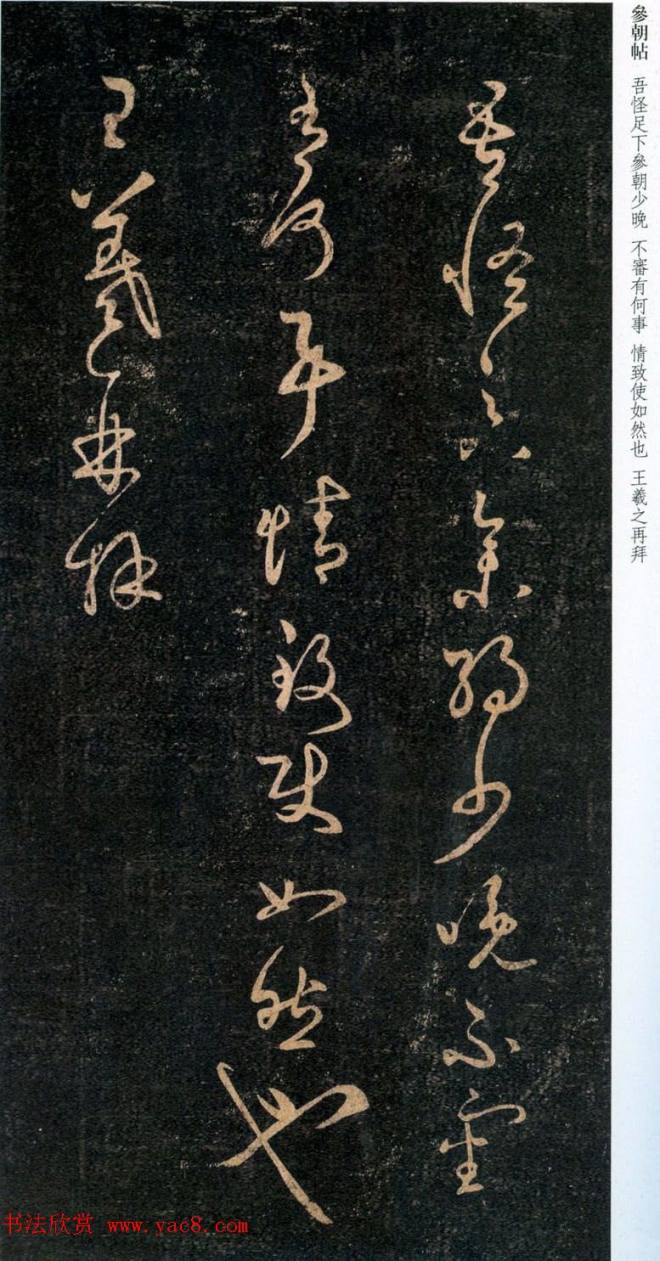 參朝帖 吾怪足下參朝少晚 不審有何事 情致使如然也 王羲之再拜
吾怪足下參朝少晚不審
有何事情致使如然也
王羲之再拜
书法欣赏 www.yac8.com